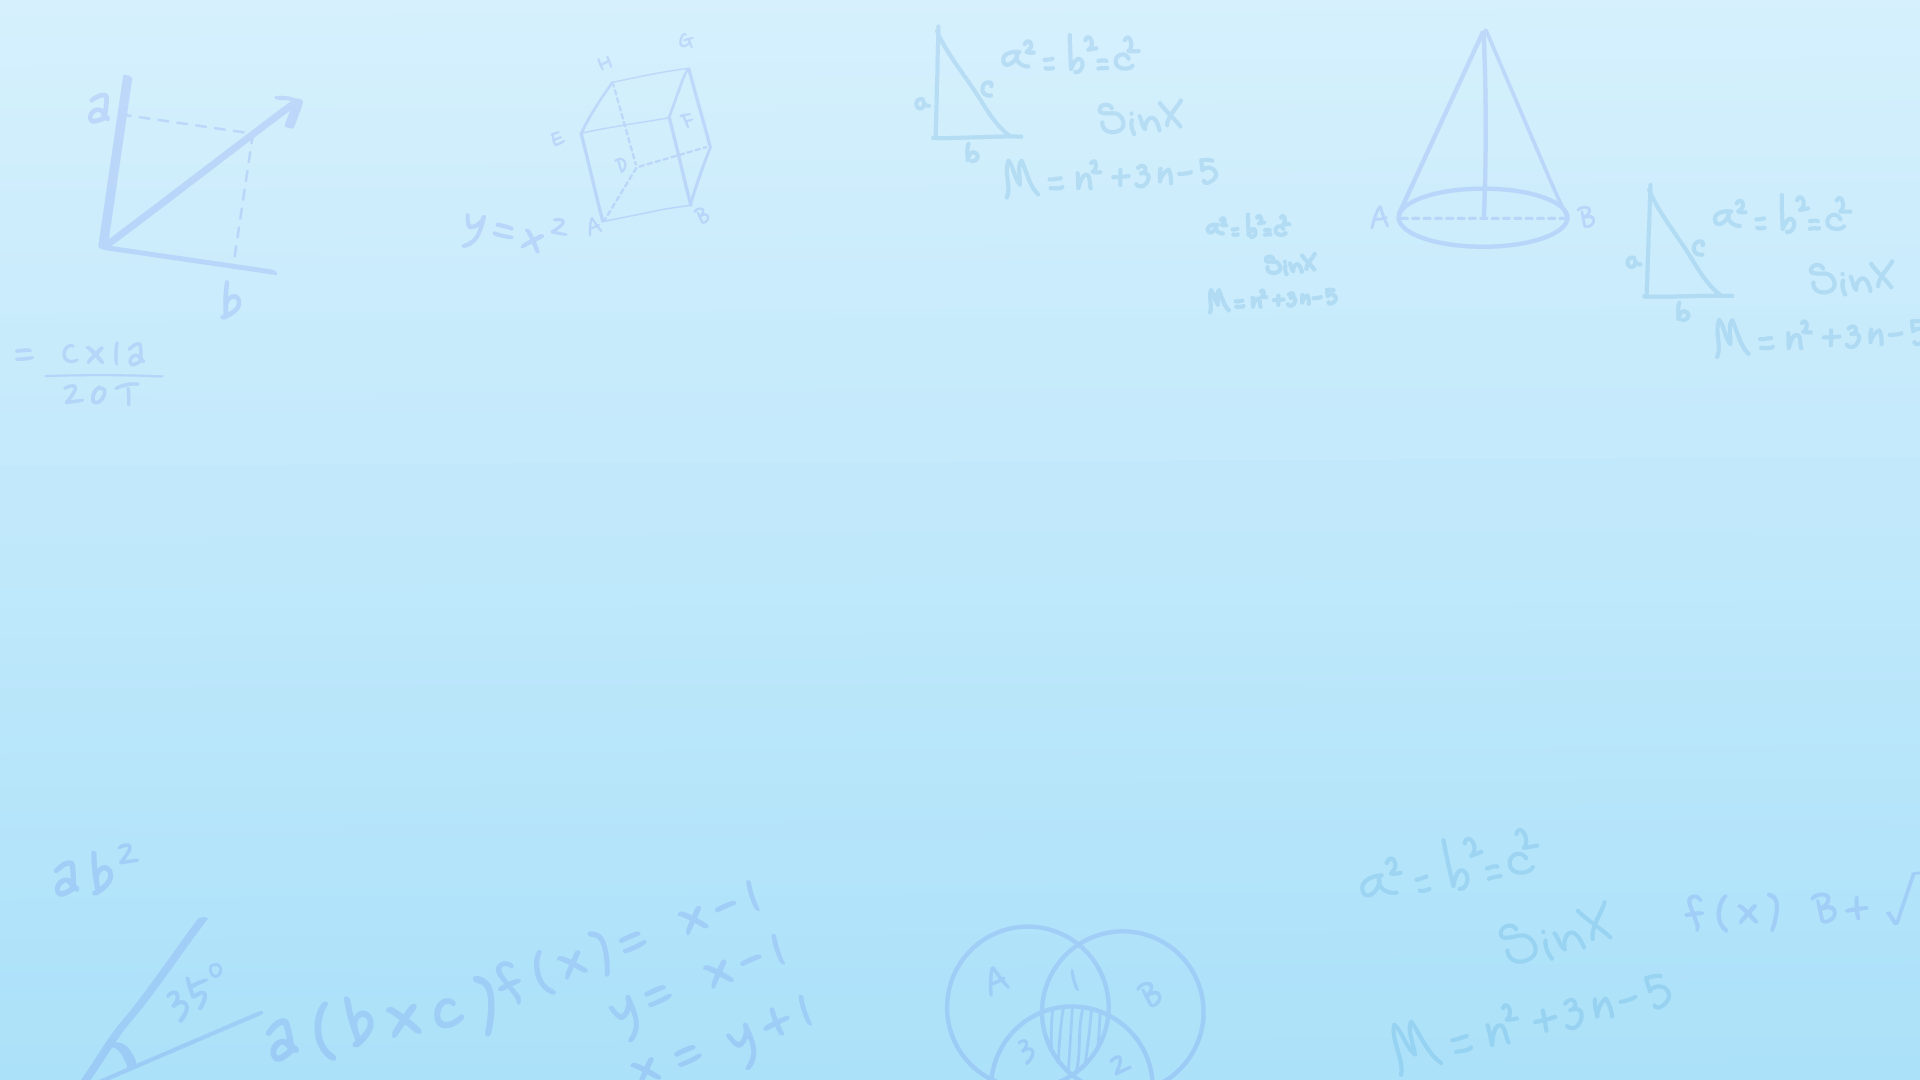 a
b
= cx1a
20T
y=x²
H
G
E
F
D
A
B
a
c
b
a²=b²=c²
SinX
M=n²+3n-5
a²=b²=c²
SinX
M=n²+3n-5
A
B
a
c
b
a²=b²=c²
SinX
M=n²+3n-5
ab²
35°
a(bxc)
f(x)= x-1
y= x-1
x= y+1
A
1
B
3
2
a²=b²=c²
SinX
M=n²+3n-5
f(x) B+√